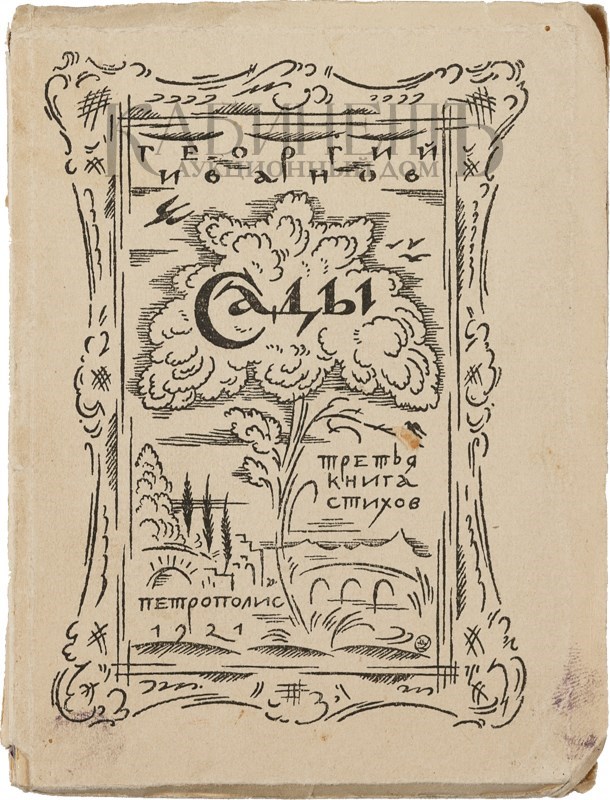 КАБИНЕТЪ
АУКЦИОННЫЙ ДОМ
ГЕОРГИЙ
ИВАНОВ
Сады
ТРЕТЬЯ
КНИГА
СТИХОВ
ПЕТРОПОЛИС
1921